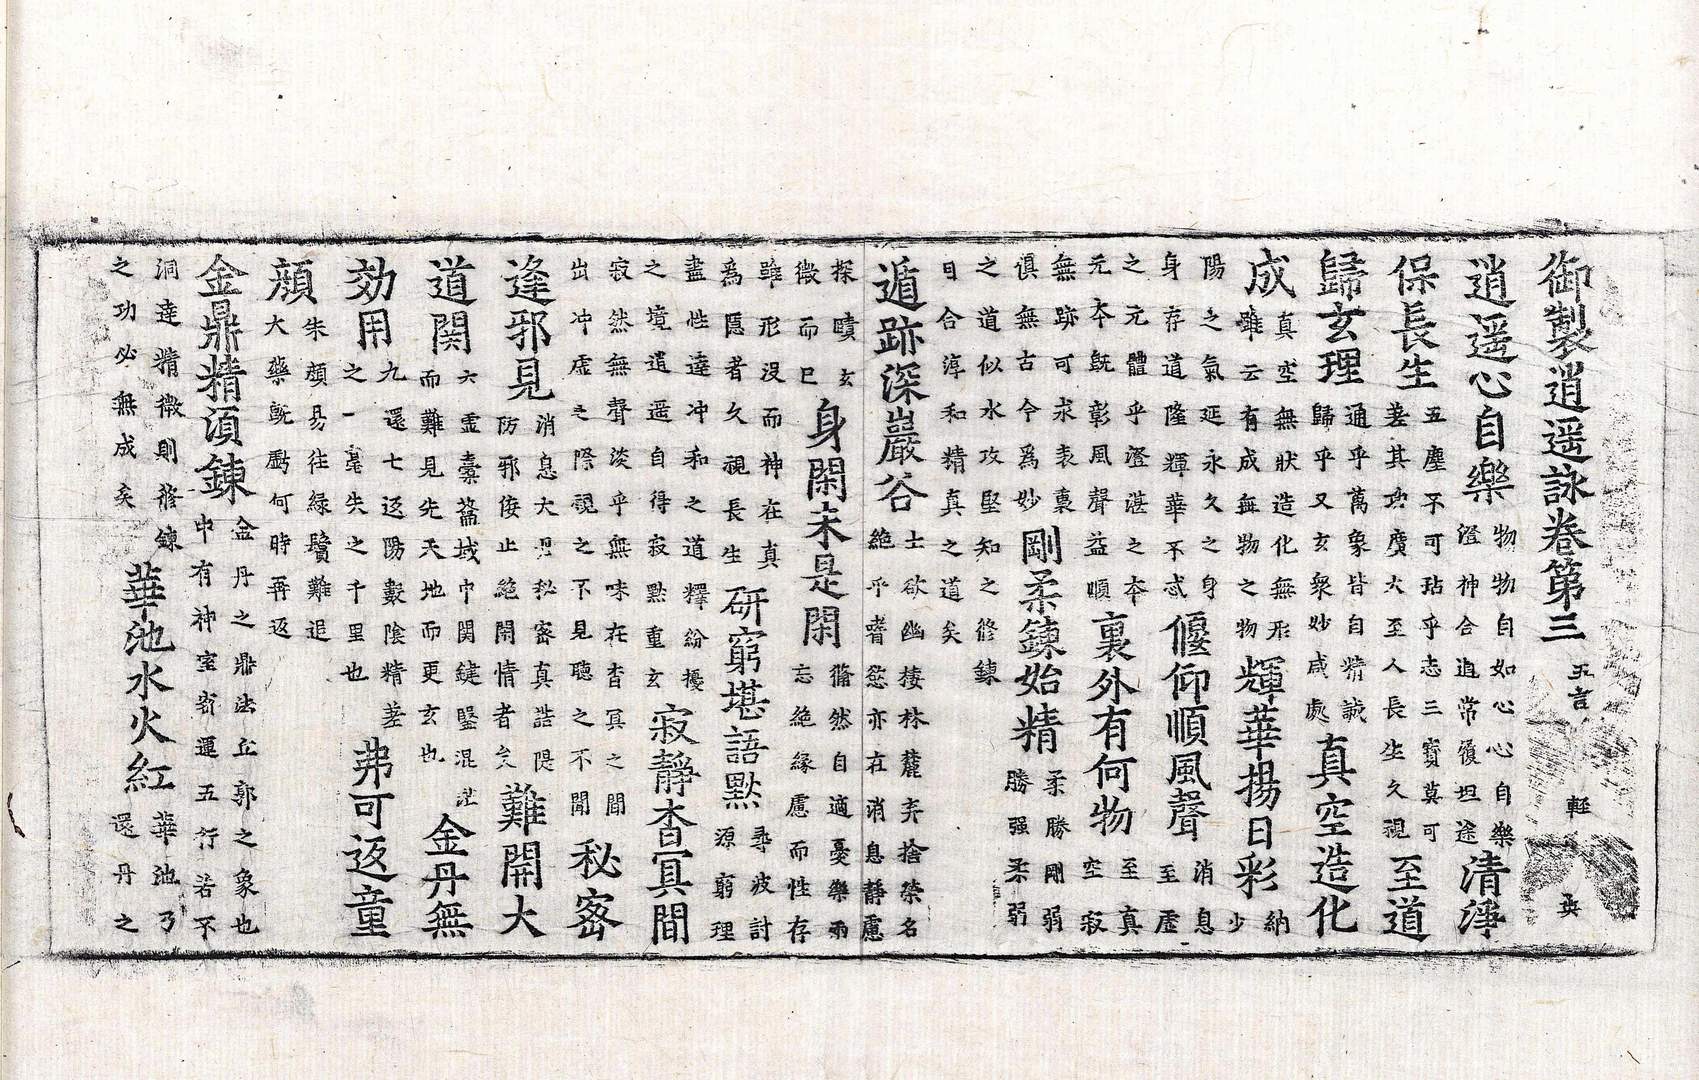 御製逍遥詠卷第三 五言 輕 英
逍遥心自樂
物物自如心心自樂
澄神合道常履坦途
清淨
保長生
五塵不可玷乎志三寶莫可
差其功廣大至人長生久視
至道
歸玄理
通乎萬象皆自精誠
歸乎又玄衆妙咸處
真空造化
成
真空無狀造化無形
雖云有成無物之物
輝華揚日彩
納
少
陽之氣延永久之身
身存道隆輝華不忒
偃仰順風聲
消息
至虛
之元體乎澄湛之本
元本旣彰風聲益順
裏外有何物
至真
空寂
無跡可求表裏
俱無古今爲妙
剛柔鍊始精
柔勝剛弱
勝强柔弱
之道似水攻堅知之修鍊
日合淳和精真之道矣
遁跡深巖谷
士欲幽棲林麓弃捨榮名
絶乎嗜慾亦在消息靜慮
探賾玄
微而巳
身閑未是閑
翛然自適憂樂兩
忘絶緣慮而性存
雖形没而神在真
爲隱者久視長生
研窮堪語默
尋疲討
源窮理
盡性達冲和之道釋紛擾
之境逍遥自得寂默重玄
寂靜杳冥間
寂然無聲淡乎無味在杳冥之間
出冲虛之際視之不見聽之不聞
秘密
逢邪見
消息大思秘密真誥隄
防邪佞止絶開情者矣
難開大
道関
六靈橐籥域中関鍵鑒混茫
而難見先天地而更玄也
金丹無
効用
九還七返陽數陰精差
之一毫失之千里也
弗可返童
顔
朱顔易往緑鬢難追
大藥旣虧何時再返
金鼎精須鍊
金丹之鼎法丘郭之象也
中有神室密運五行若不
洞達精微則修鍊
之功必無成矣
華池水火紅
華池乃
還丹之